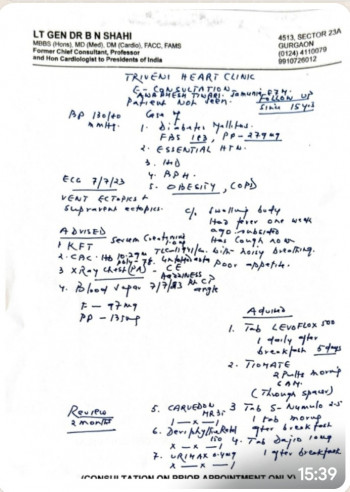 LT GEN DR B N SHAHI
MBBS (Hons), MD (Med), DM (Cardio), FACC, FAMS
Former Chief Consultant, Professor
and Hon Cardiologist to Presidents of India
4513, SECTOR 23A
GURGAON
(0124) 4110079
9910726012
TRIVENI HEART CLINIC
E - CONSULTATION
Patient not seen.
FOLLOW UP
Since 15 yrs
BP 130/70
mmHg.
Case of
1. Diabetes Mellitus.
FBS 193, PP - 279 mg
2. ESSENTIAL HTN.
3. IHD
4. BPH.
5. OBESITY, COPD
ECG 7/7/23
VENT ECTOPICS +
Supravent ectopics.
C/o swelling body
Had fever one week
ago subsided
Has cough now
with noisy breathing.
Poor appetite.
ADVISED
1 KFT Serum Creatinine
2. CBC - Hb 10.2 gm
3 X Ray Chest (PA) - CE
HAZINESS
Rt CP
angle
4. Blood sugar 7/7/23
F - 97 mg
PP - 135 mg
Advised
1. Tab LEVOFLOX 500
1 daily after
breakfast 5 days
2. TIOMATE
2 Puffs morning
6 AM.
(Through spacer)
3 Tab S- Numulo 2.5
1 tab morning
after breakfast
4. Tab Dajio 10mg
1 after breakfast
Review
2 months
5. CARVEDON
MR 35
1 — x — 1
6. Deriphyllin Retard
150
x — x — 1
7. URIMAX 0.4mg
x — x — 1
(CONSULTATION ON PRIOR APPOINTMENT ONLY)
15:39